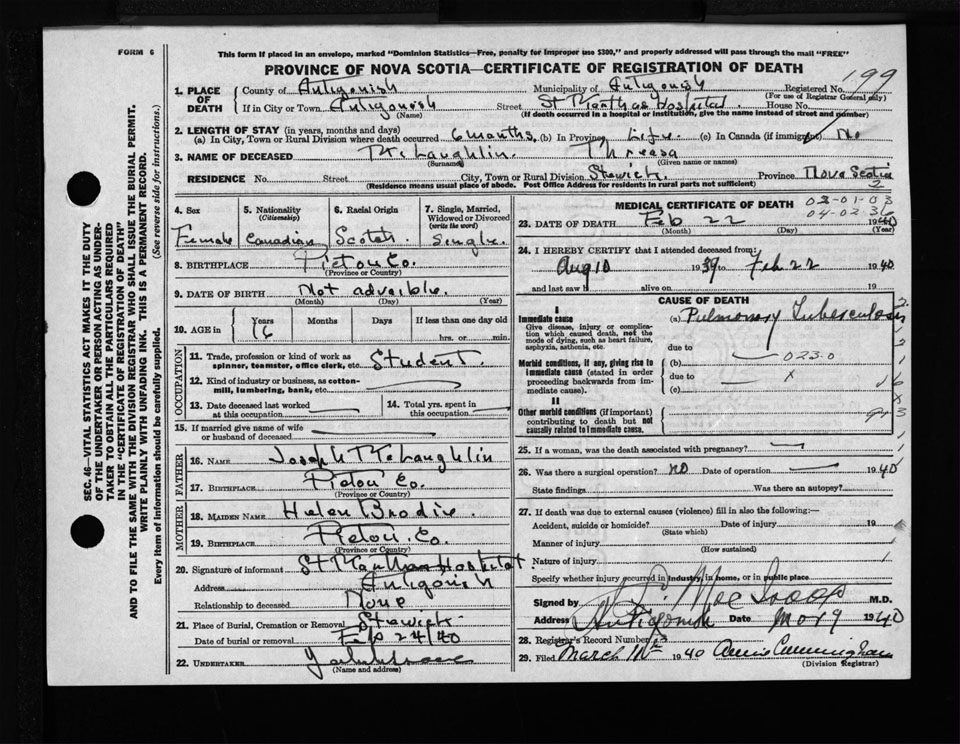 FORM 6
This form if placed in an envelope, marked "Dominion Statistics—Free, penalty for improper use $300," and properly addressed will pass through the mail "FREE"
PROVINCE OF NOVA SCOTIA—CERTIFICATE OF REGISTRATION OF DEATH
199
1. PLACE OF DEATH
County of Antigonish Municipality of Antigonish Registered No.
(For use of Registrar General only)
If in City or Town Antigonish Street St Marthas Hospital House No.
(Name) (If death occurred in a hospital or institution, give the name instead of street and number)
2. LENGTH OF STAY (in years, months and days)
(a) In City, Town or Rural Division where death occurred 6 months (b) In Province Life (c) In Canada (if immigrant) No
3. NAME OF DECEASED McLaughlin Threasa
(Surname) (Given name or names)
RESIDENCE No. Street City, Town or Rural Division Province Nova Scotia
(Residence means usual place of abode. Post Office Address for residents in rural parts not sufficient)
2
4. Sex
Female
5. Nationality
(Citizenship)
Canadian
6. Racial Origin
Scotch
7. Single, Married, Widowed or Divorced
(write the word)
Single
8. BIRTHPLACE Pictou Co.
(Province or Country)
9. DATE OF BIRTH Not
(Month) (Day) (Year)
10. AGE in Years Months Days If less than one day old
16 hrs. or min.
OCCUPATION
11. Trade, profession or kind of work as spinner, teamster, office clerk, etc. Student
12. Kind of industry or business, as cotton-mill, lumbering, bank, etc.
13. Date deceased last worked at this occupation
14. Total yrs. spent in this occupation
15. If married give name of wife or husband of deceased
FATHER
16. NAME Joseph McLaughlin
17. BIRTHPLACE Pictou Co.
(Province or Country)
MOTHER
18. MAIDEN NAME Helen Brodie
19. BIRTHPLACE Pictou Co.
(Province or Country)
20. Signature of informant St Marthas Hospital
Address Antigonish
Relationship to deceased None
21. Place of Burial, Cremation or Removal
Date of burial or removal Feb 24/40
22. UNDERTAKER
(Name and address)
MEDICAL CERTIFICATE OF DEATH
03-01-03
04-02-36
23. DATE OF DEATH Feb 22 1940
(Month) (Day) (Year)
24. I HEREBY CERTIFY that I attended deceased from:
Aug 10 1939 to Feb 22 1940
and last saw h alive on 19
CAUSE OF DEATH
I
Immediate cause
Give disease, injury or complication which caused death, not the mode of dying, such as heart failure, asphyxia, asthenia, etc.
(a) Pulmonary Tuberculosis
due to
Morbid conditions, if any, giving rise to immediate cause (stated in order proceeding backwards from immediate cause).
(b) 023.0
due to x
(c)
II
Other morbid conditions (if important) contributing to death but not causally related to immediate cause.
25. If a woman, was the death associated with pregnancy?
26. Was there a surgical operation? no Date of operation 1940
State findings Was there an autopsy?
27. If death was due to external causes (violence) fill in also the following:—
Accident, suicide or homicide? Date of injury 19
(State which)
Manner of injury
(How sustained)
Nature of injury
Specify whether injury occurred in industry, in home, or in public place
Signed by M.D.
Address Antigonish Date 1940
28. Registrar's Record Number
29. Filed March 1940 Annie Cunningham
(Division Registrar)
SEC. 46—VITAL STATISTICS ACT MAKES IT THE DUTY
OF THE UNDERTAKER OR PERSON ACTING AS UNDER-
TAKER TO OBTAIN ALL THE PARTICULARS REQUIRED
IN THE "CERTIFICATE OF REGISTRATION OF DEATH"
AND TO FILE THE SAME WITH THE DIVISION REGISTRAR WHO SHALL ISSUE THE BURIAL PERMIT.
WRITE PLAINLY WITH UNFADING INK. THIS IS A PERMANENT RECORD.
Every item of information should be carefully supplied. (See reverse side for instructions.)